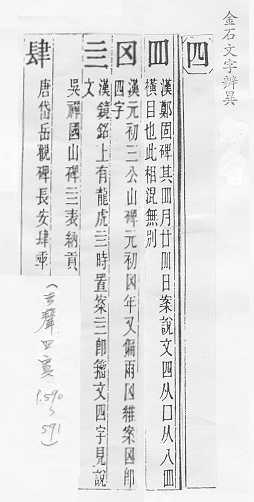 金石文字辨異
四
罒 漢鄭固碑其罒月廿罒日案說文四从囗从八罒
橫目也此相混無別
𦉭 漢元初三公山碑元初𦉭年又偏雨𦉭維案𦉭即
四字
亖 漢鏡銘上有龍虎亖時置案亖即籀文四字見說
文
吳禪國山碑亖表納貢
肆 唐岱岳觀碑長安肆年
(去聲四寘
P.590
~
591)